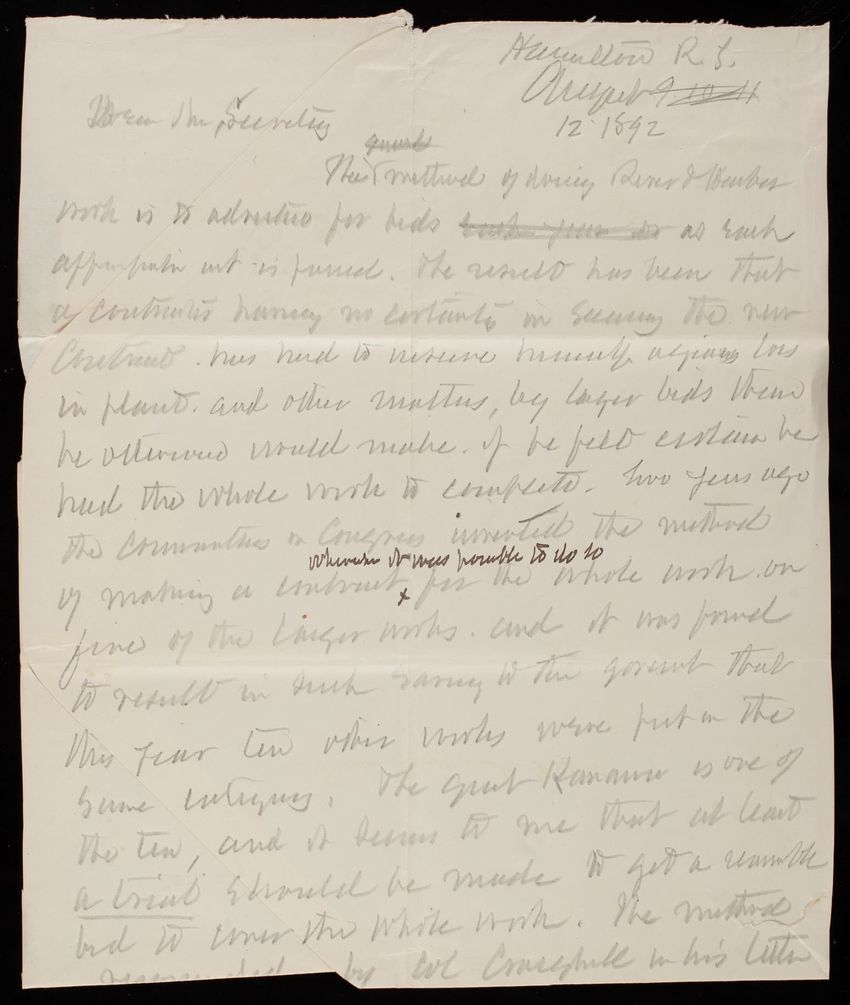 Hamilton R.I.
August 9 10 11
12 1892
Dear Mr. Secretary
usual
The method of doing River & Harbor
work is to advertise for bids each year or as each
appropriation is passed. The result has been that
a contractor having no certainty in securing the new
Contract has had to insure himself against loss
in plant. and other matters, by larger bids than
he otherwise would make. if he felt certain he
had the whole work to complete. Two years ago
the Committees in Congress invented the method
wherever it was possible to do so
of making a contract x for the whole work on
five of the larger works. and it was found
to result in such saving to the government that
this year ten other works were put in the
same category. The great Kanawa is one of
the ten, and it seems to me that at least
a trial should be made to get a reasonable
bid to cover the whole work. The method
recommended by Col Craighill in his letter